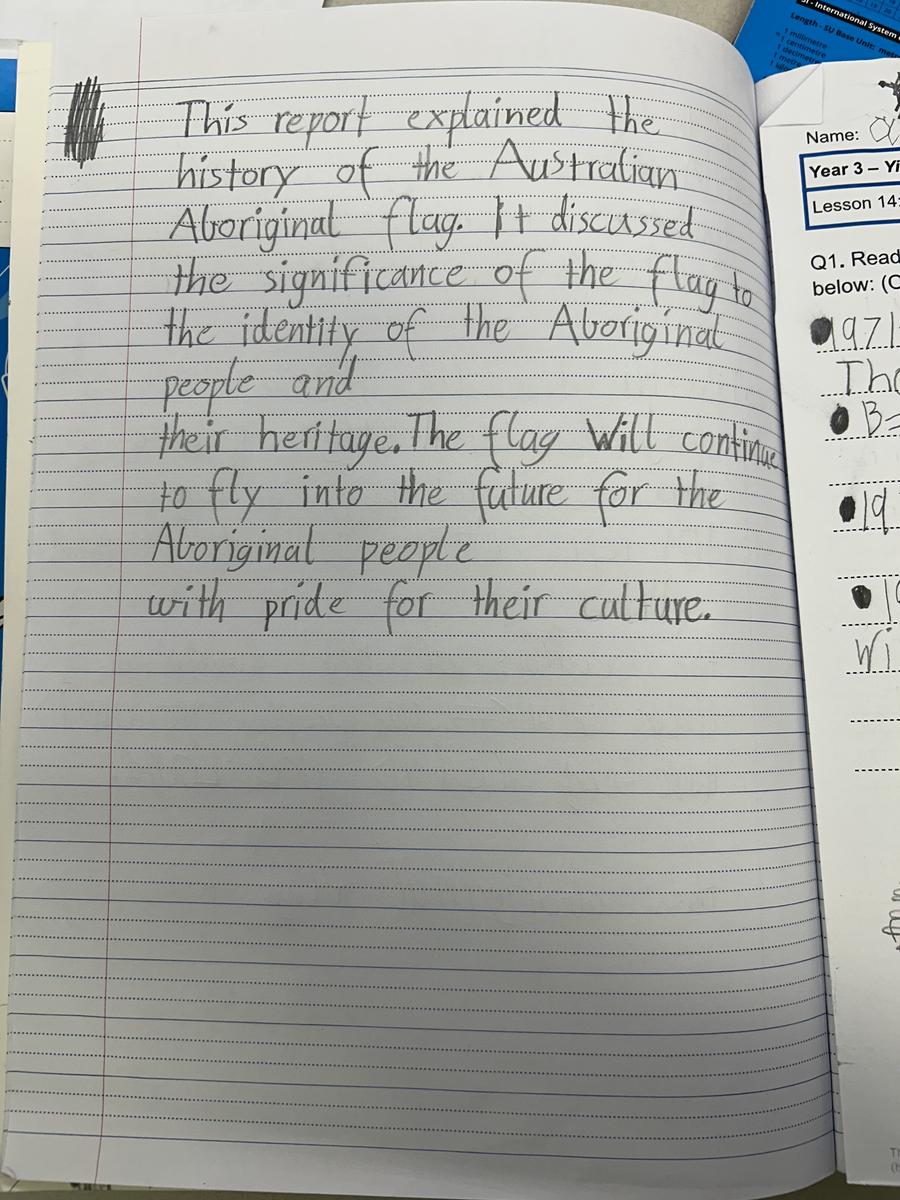 This report explained the
history of the Australian
Aboriginal flag. It discussed
the significance of the flag to
the identity of the Aboriginal
people and
their heritage. The flag Will continue
to fly into the future for the
Aboriginal people
with pride for their culture.
- International System
Length - SU Base Unit:
1 millimetre
1 centimetre
1 decimetre
1 metre
Name:
Year 3 –
Lesson 14:
Q1. Read
below:
1971
B=
19
Wi